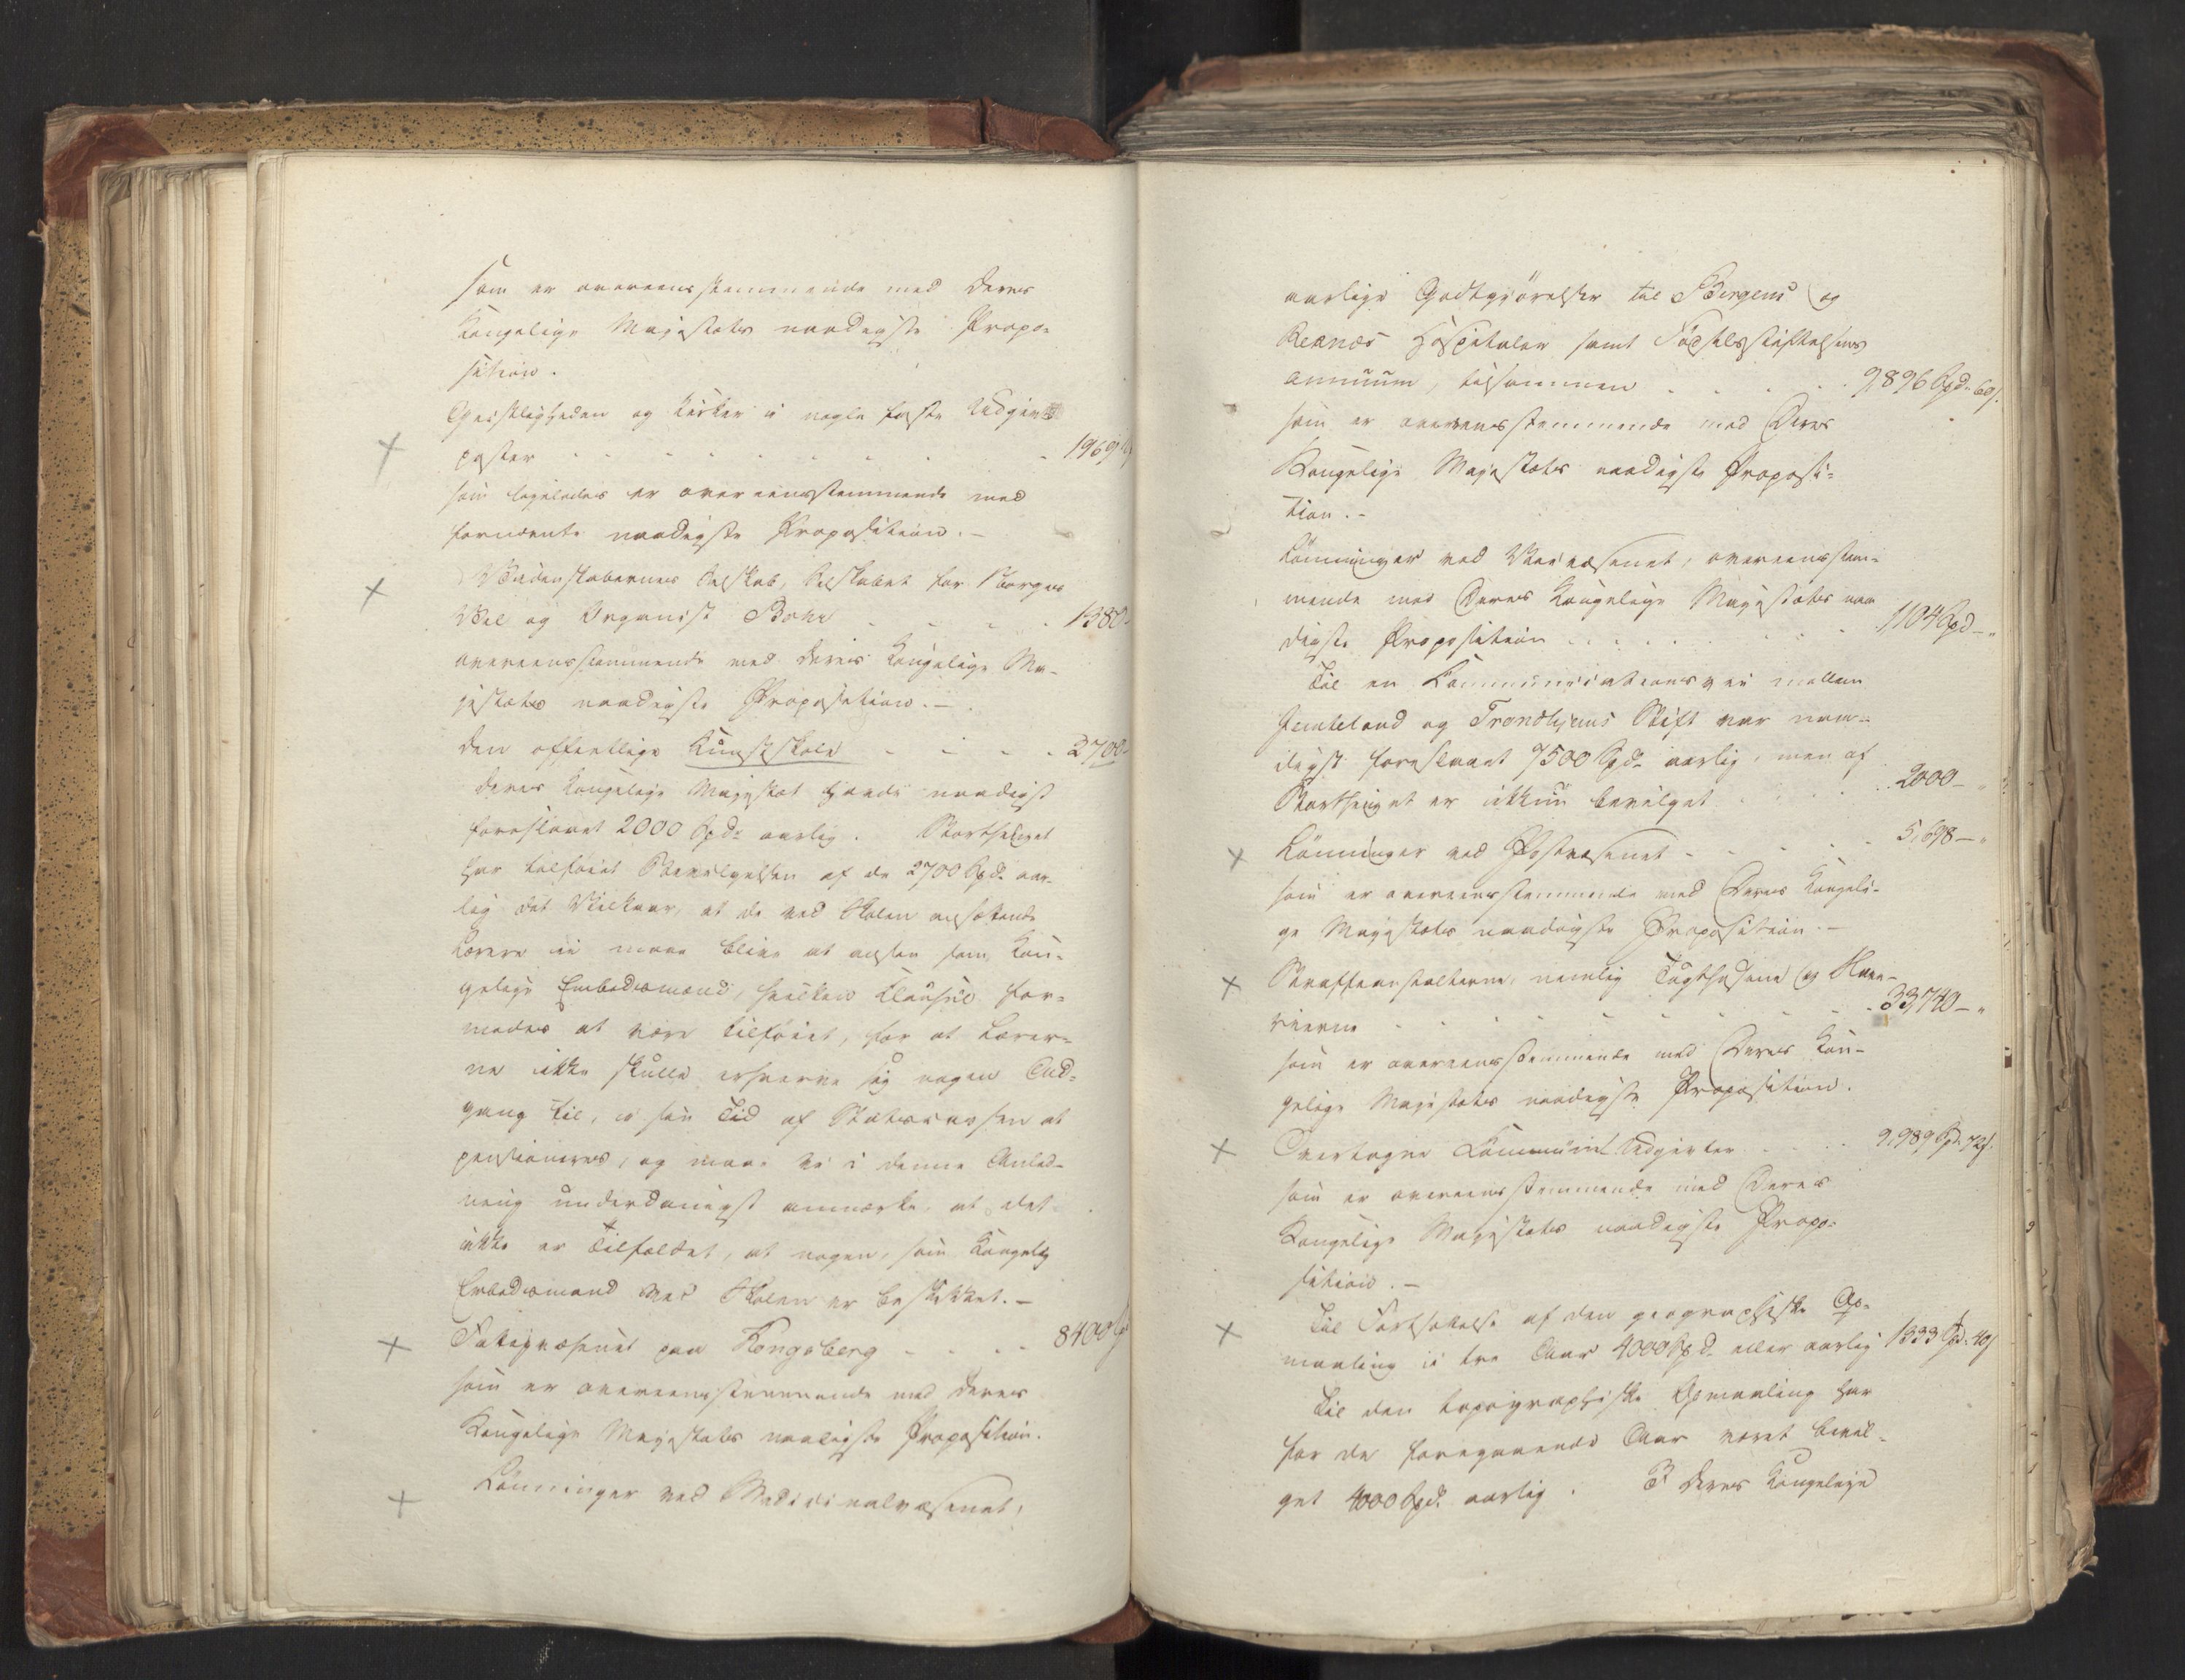 som er overeensstemmende med Deres
Kongelige Majestæts naadigste Propo-
sition.
Geistligheden og Kirker i nogle faste Udgivts
poster - - - - - - - - 1969
som ligeledes er overeensstemmende med
formeente naadigste Proposition. -
Videnskabernes Selskab, Selskabet for Norges
Vel og Organist Bohr - - - - 1380-
overeensstemmende med Deres Kongelige Ma-
jestæts naadigste Proposition. -
Den offentlige Kunstskole - - - - 2700-
Deres Kongelige Majestæt havde naadigst
foreslaaet 2000 Spd. aarlig. Storthinget
har tilføiet Bevilgelsen af de 2700 Spd. aar-
lig det Vilkaar, at de ved Skolen ansættende
Lærere ei maae blive at ansee som Kon-
gelige Embedsmænd, hvilken Clausul for-
modes at være tilføiet, for at Lærer-
ne ikke skulle erhverve sig nogen Ad-
gang til, i sin Tid af Statscassen at
pensioneres, og maae vi i denne Anled-
ning underdanigst anmærke, at det
ikke er Tilfældet, at nogen, som Kongelig
Embedsmand ved Skolen er beskikket. -
Fattigvæsenet paa Kongsberg - - - - 8400 Sp
som er overeensstemmende med Deres
Kongelige Majestæts naadigste Proposition.
Lønninger ved Medicinalvæsenet,
aarlige Godtgjørelser til Bergens og
Reknæs Hospitaler samt Fødselsstiftelsens
annuum, tilsammen - - - - 9,896 Spd. 60 s.
som er overeensstemmende med Deres
Kongelige Majestæts naadigste Proposi-
tion. -
Lønninger ved Veivæsenet, overeensstem-
mende med Deres Kongelige Majestæts naa
digste Proposition - - - - - 1,104 Spd - "
Til en Communicationsvei mellem
Jemteland og Trondhjems Stift var naa-
digst foreslaaet 7500 Spd. aarlig, men af
Storthinget er ikkun bevilget - - - - 2000 - "
Lønninger ved Postvæsenet - - - - - 5,698 - "
som er overeensstemmende med Deres Kongeli-
ge Majestæts naadigste Proposition. -
Straffeanstalterne, nemlig Tugthusene og Slave-
rierne - - - - - - - - 33,740 - "
som er overeensstemmende med Deres Kon-
gelige Majestæts naadigste Proposition.
Overtagne Communal Udgivter - - - 9,989 Spd. 72 s.
som er overeensstemmende med Deres
Kongelige Majestæts naadigste Propo-
sition. -
Til Fortsættelse af den geographiske Op-
maaling i tre Aar 4000 Spd. eller aarlig 1333 Spd. 40 s
Til den topographiske Opmaaling har
for de foregaaende Aar været bevil-
get 4000 Spd. aarlig. I Deres Kongelige